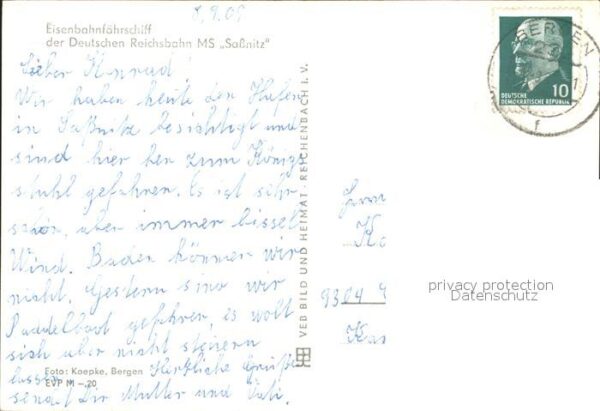 8.9.65
Eisenbahnfährschiff
der Deutschen Reichsbahn MS „Saßnitz"
Lieber Konrad!
Wir haben heute den Hafen
in Saßnitz besichtigt und
sind hier her zum Königs
stuhl gefahren. Es ist sehr
schön, aber immer bissel
Wind. Baden können wir
nicht. Gestern sind wir
Paddelboot gefahren, es wollt
sich aber nicht steuern
lassen. Herzliche Grüße
sendet Dir Mutter und Vati.
Foto: Kaepke, Bergen
EVP M -.20
VEB BILD UND HEIMAT · REICHENBACH I. V.
BERGEN
10
DEUTSCHE
DEMOKRATISCHE REPUBLIK
f
Herrn
Ko
9304
privacy protection
Datenschutz